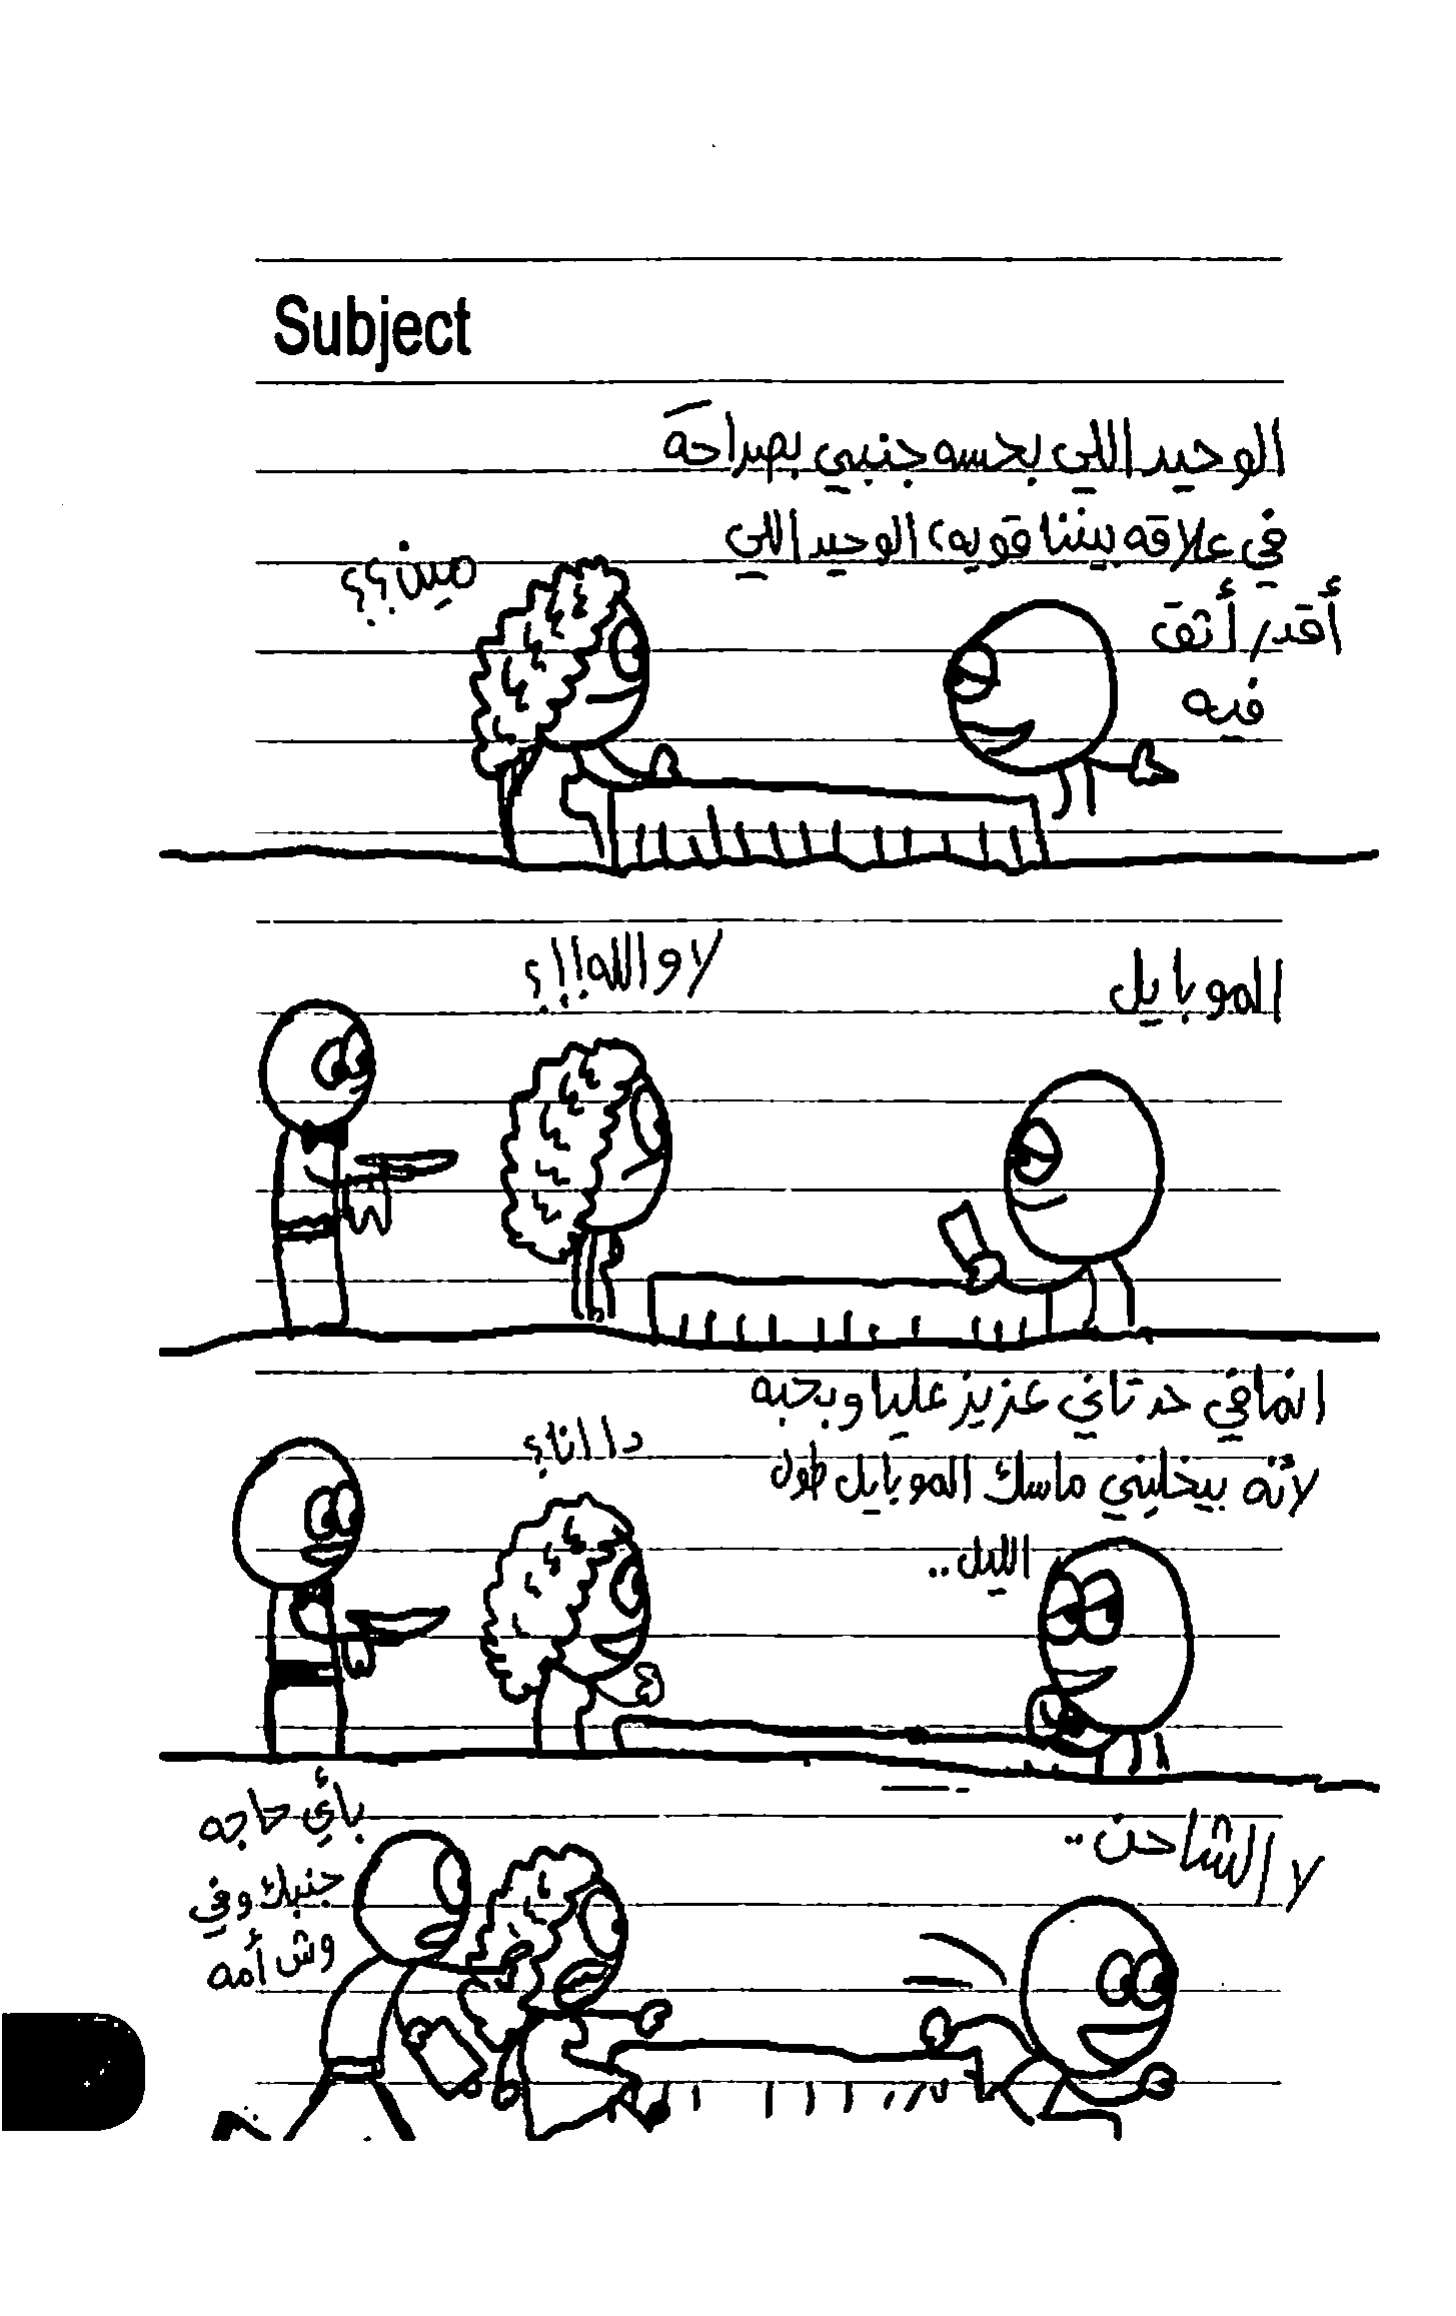 Subject
الوحيد اللي بحسه جنبي بصراحة
في علاقه بيننا قويه، الوحيد اللي
أقدر أثق
فيه
مين؟؟
الموبايل
لا والله!!؟
انما في حد تاني عزيز عليا وبحبه
لأنه بيخليني ماسك الموبايل طول
الليل..
دا انا؟
لا الشاحن..
بأي حاجه
جنبك وفي
وش أمه